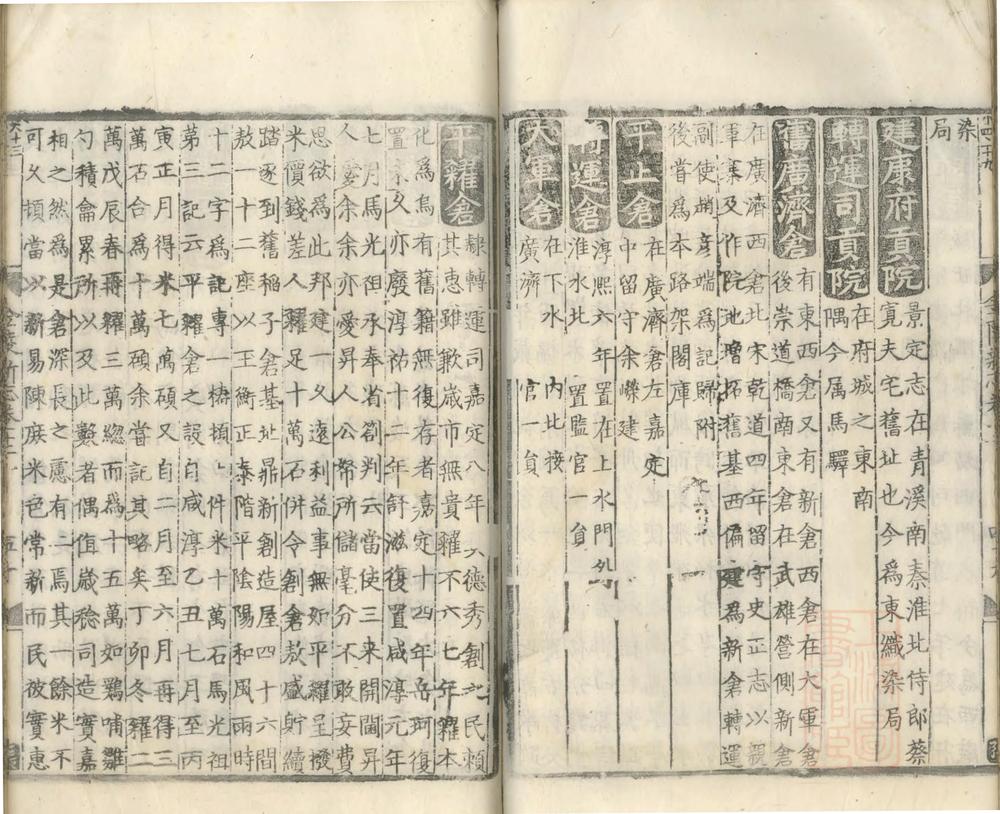 染
局
建康府貢院
景定志在青溪南秦淮北侍郎蔡
寬夫宅舊址也今爲東織染局
轉運司貢院
在府城之東南
隅今属馬驛
舊廣濟倉
有東西倉又有新西倉在大軍倉
後崇道橋南東倉在武雄營側新倉
在廣濟西倉北宋乾道四年留守史正志以親
軍寨及作院池増拓舊基西偏建爲新倉轉運
副使趙彦端爲記歸附
後甞爲本路架閣庫
平止倉
在廣濟倉左嘉定
中留守余嶸建
轉運倉
淳熙六年置在上水門外
淮水北 置監官一員
大軍倉
在下水 内北接
廣濟倉 官一員
平糴倉
隸轉運司嘉定八年 德秀創 民賴
其惠雖歉歳市無貴糶不六七年糴本
化爲烏有舊籍無復存者嘉定十四年岳珂復
置未久亦廢淳祐十二年許滋復置咸淳元年
七月馬光祖承奉省劄判云當使三来開閫昇
人愛余余亦愛昇人公帑所儲毫分不敢妄費
思欲爲此邦建久遠利益事無如平糴呈撥
米價錢差人糴足十萬石併令創倉敖盛貯續
踏逐到舊稻子倉基址鼎新創造屋四十六間
敖一十二座以 王衡正泰階平陰陽和風雨時
十二字爲記專一樁頓上件米十萬石馬光祖
第三記云平糶倉之設自咸淳乙丑七月至丙
寅正月得米七萬碩又自二月至六月再得三
萬石合爲十萬碩余甞記其略矣丁卯冬糴二
萬戊辰春再糴三萬緫而爲十五萬如鷄哺雛
勺積龠累所以及此數者偶值歳稔司造實嘉
相之然爲是倉深長之慮有二焉其一餘米不
可久頓當以新易陳庻米色常新而民彼實惠